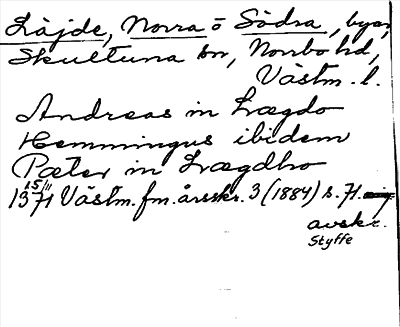 Läjde, Norra o Södra, byar,
Skultuna sn, Norrbo hd,
Västm. l.
Andreas in Lægdo
Hemmingus ibidem
Pæter in Lægdho
15/11
1371 Västm. fm. årsskr. 3 (1884) s. 71.
avskr.
Styffe